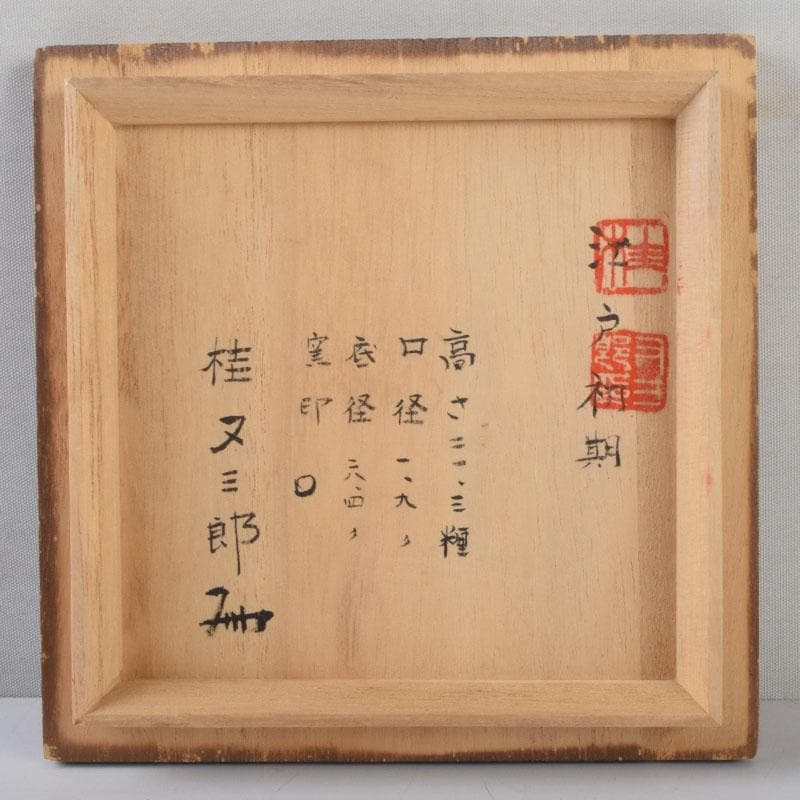 江戸初期
高さ二一、三糎
口径一、九〃
底径六、四〃
窯印〇
桂又三郎